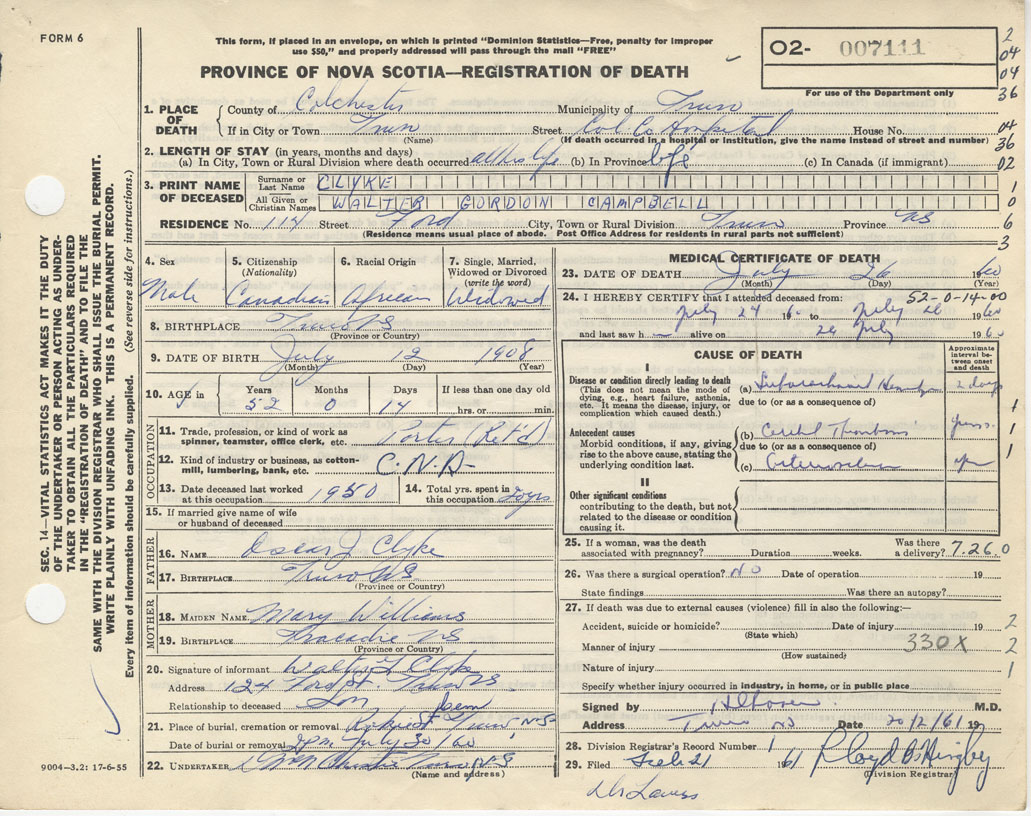 FORM 6
This form, if placed in an envelope, on which is printed "Dominion Statistics—Free, penalty for improper
use $50," and properly addressed will pass through the mail "FREE"
PROVINCE OF NOVA SCOTIA—REGISTRATION OF DEATH
02- 007111
For use of the Department only
2
04
04
36
04
36
02
1
0
6
3
1. PLACE OF DEATH
County of Colchester Municipality of Truro
If in City or Town Truro Street Col. Co Hospital House No.
(Name) (If death occurred in a hospital or institution, give the name instead of street and number)
2. LENGTH OF STAY (in years, months and days)
(a) In City, Town or Rural Division where death occurred all his life (b) In Province life (c) In Canada (if immigrant)
3. PRINT NAME OF DECEASED
Surname or Last Name CLYKE
All Given or Christian Names WALTER GORDON CAMPBELL
RESIDENCE No. 114 Street Ford City, Town or Rural Division Truro Province NS
(Residence means usual place of abode. Post Office Address for residents in rural parts not sufficient)
4. Sex 5. Citizenship (Nationality) 6. Racial Origin 7. Single, Married, Widowed or Divorced (write the word)
Male Canadian African Widowed
8. BIRTHPLACE Truro NS
(Province or Country)
9. DATE OF BIRTH July 12 1908
(Month) (Day) (Year)
10. AGE in Years Months Days If less than one day old
52 0 14 hrs. or min.
OCCUPATION
11. Trade, profession, or kind of work as spinner, teamster, office clerk, etc. Porter (Ret'd)
12. Kind of industry or business, as cotton-mill, lumbering, bank, etc. C.N.R.
13. Date deceased last worked at this occupation 1950
14. Total yrs. spent in this occupation 20 yrs
15. If married give name of wife or husband of deceased
FATHER
16. NAME Oscar J. Clyke
17. BIRTHPLACE Truro NS
(Province or Country)
MOTHER
18. MAIDEN NAME Mary Williams
19. BIRTHPLACE Tracadie NS
(Province or Country)
20. Signature of informant Walter Clyke
Address 124 Ford St. Truro NS
Relationship to deceased Son
21. Place of burial, cremation or removal Truro N.S.
Date of burial or removal 2 pm July 30/60
22. UNDERTAKER Truro N.S.
(Name and address)
MEDICAL CERTIFICATE OF DEATH
23. DATE OF DEATH July 26 1960
(Month) (Day) (Year)
52-0-14-00
24. I HEREBY CERTIFY that I attended deceased from:
July 24 1960 to July 26 1960
and last saw h alive on 26 July 1960
CAUSE OF DEATH
Approximate interval between onset and death
I
Disease or condition directly leading to death
(This does not mean the mode of dying, e.g., heart failure, asthenia, etc. It means the disease, injury, or complication which caused death.)
(a) Subarachnoid 2 days
due to (or as a consequence of)
Antecedent causes
Morbid conditions, if any, giving rise to the above cause, stating the underlying condition last.
(b) Cerebral Thrombosis yrs.
due to (or as a consequence of)
(c)
II
Other significant conditions
contributing to the death, but not related to the disease or condition causing it.
1
1
1
25. If a woman, was the death associated with pregnancy? Duration weeks. Was there a delivery? 7.26.0
26. Was there a surgical operation? NO Date of operation 19
State findings Was there an autopsy?
27. If death was due to external causes (violence) fill in also the following:—
Accident, suicide or homicide? Date of injury 19 2
(State which)
Manner of injury 330X 2
(How sustained)
Nature of injury 1
Specify whether injury occurred in industry, in home, or in public place
Signed by M.D.
Address Truro NS Date 20/2/61 19
28. Division Registrar's Record Number 1
29. Filed Feb 21 1961
(Division Registrar)
SEC. 14—VITAL STATISTICS ACT MAKES IT THE DUTY
OF THE UNDERTAKER OR PERSON ACTING AS UNDER-
TAKER TO OBTAIN ALL THE PARTICULARS REQUIRED
IN THE "REGISTRATION OF DEATH" AND TO FILE THE
SAME WITH THE DIVISION REGISTRAR WHO SHALL ISSUE THE BURIAL PERMIT.
WRITE PLAINLY WITH UNFADING INK. THIS IS A PERMANENT RECORD.
Every item of information should be carefully supplied. (See reverse side for instructions.)
9004-3.2: 17-6-55